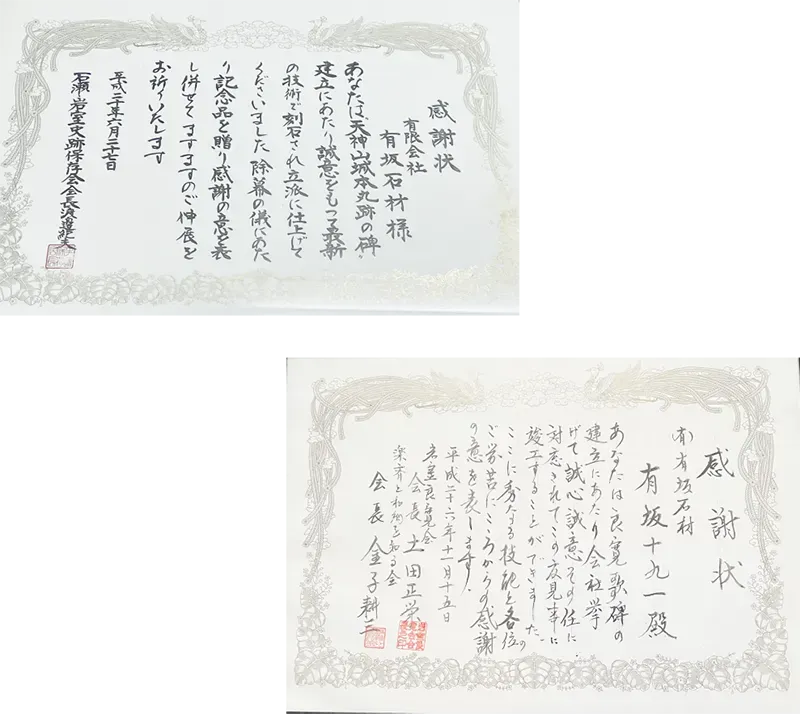 感謝状
有限会社
有坂石材様
あなたは天神山城本丸跡の碑
建立にあたり誠意をもって最新
の技術で刻石され立派に仕上げて
くださいました 除幕の儀にあた
り記念品を贈り感謝の意を表
し併せてますますのご伸展を
お祈りいたします
平成二十年六月二十七日
石瀬・岩室史跡保存会会長
感謝状
(有)有坂石材
有坂十九一殿
あなたは良寛歌碑の
建立にあたり会社挙
げて誠心誠意その任に
対応されてこの度見事に
竣工することができました
ここに秀たる技能と各位の
ご労苦にこころからの感謝
の意を表します
平成二十六年十一月十五日
岩室良寛会
会長 土田正栄
会長 金子耕三